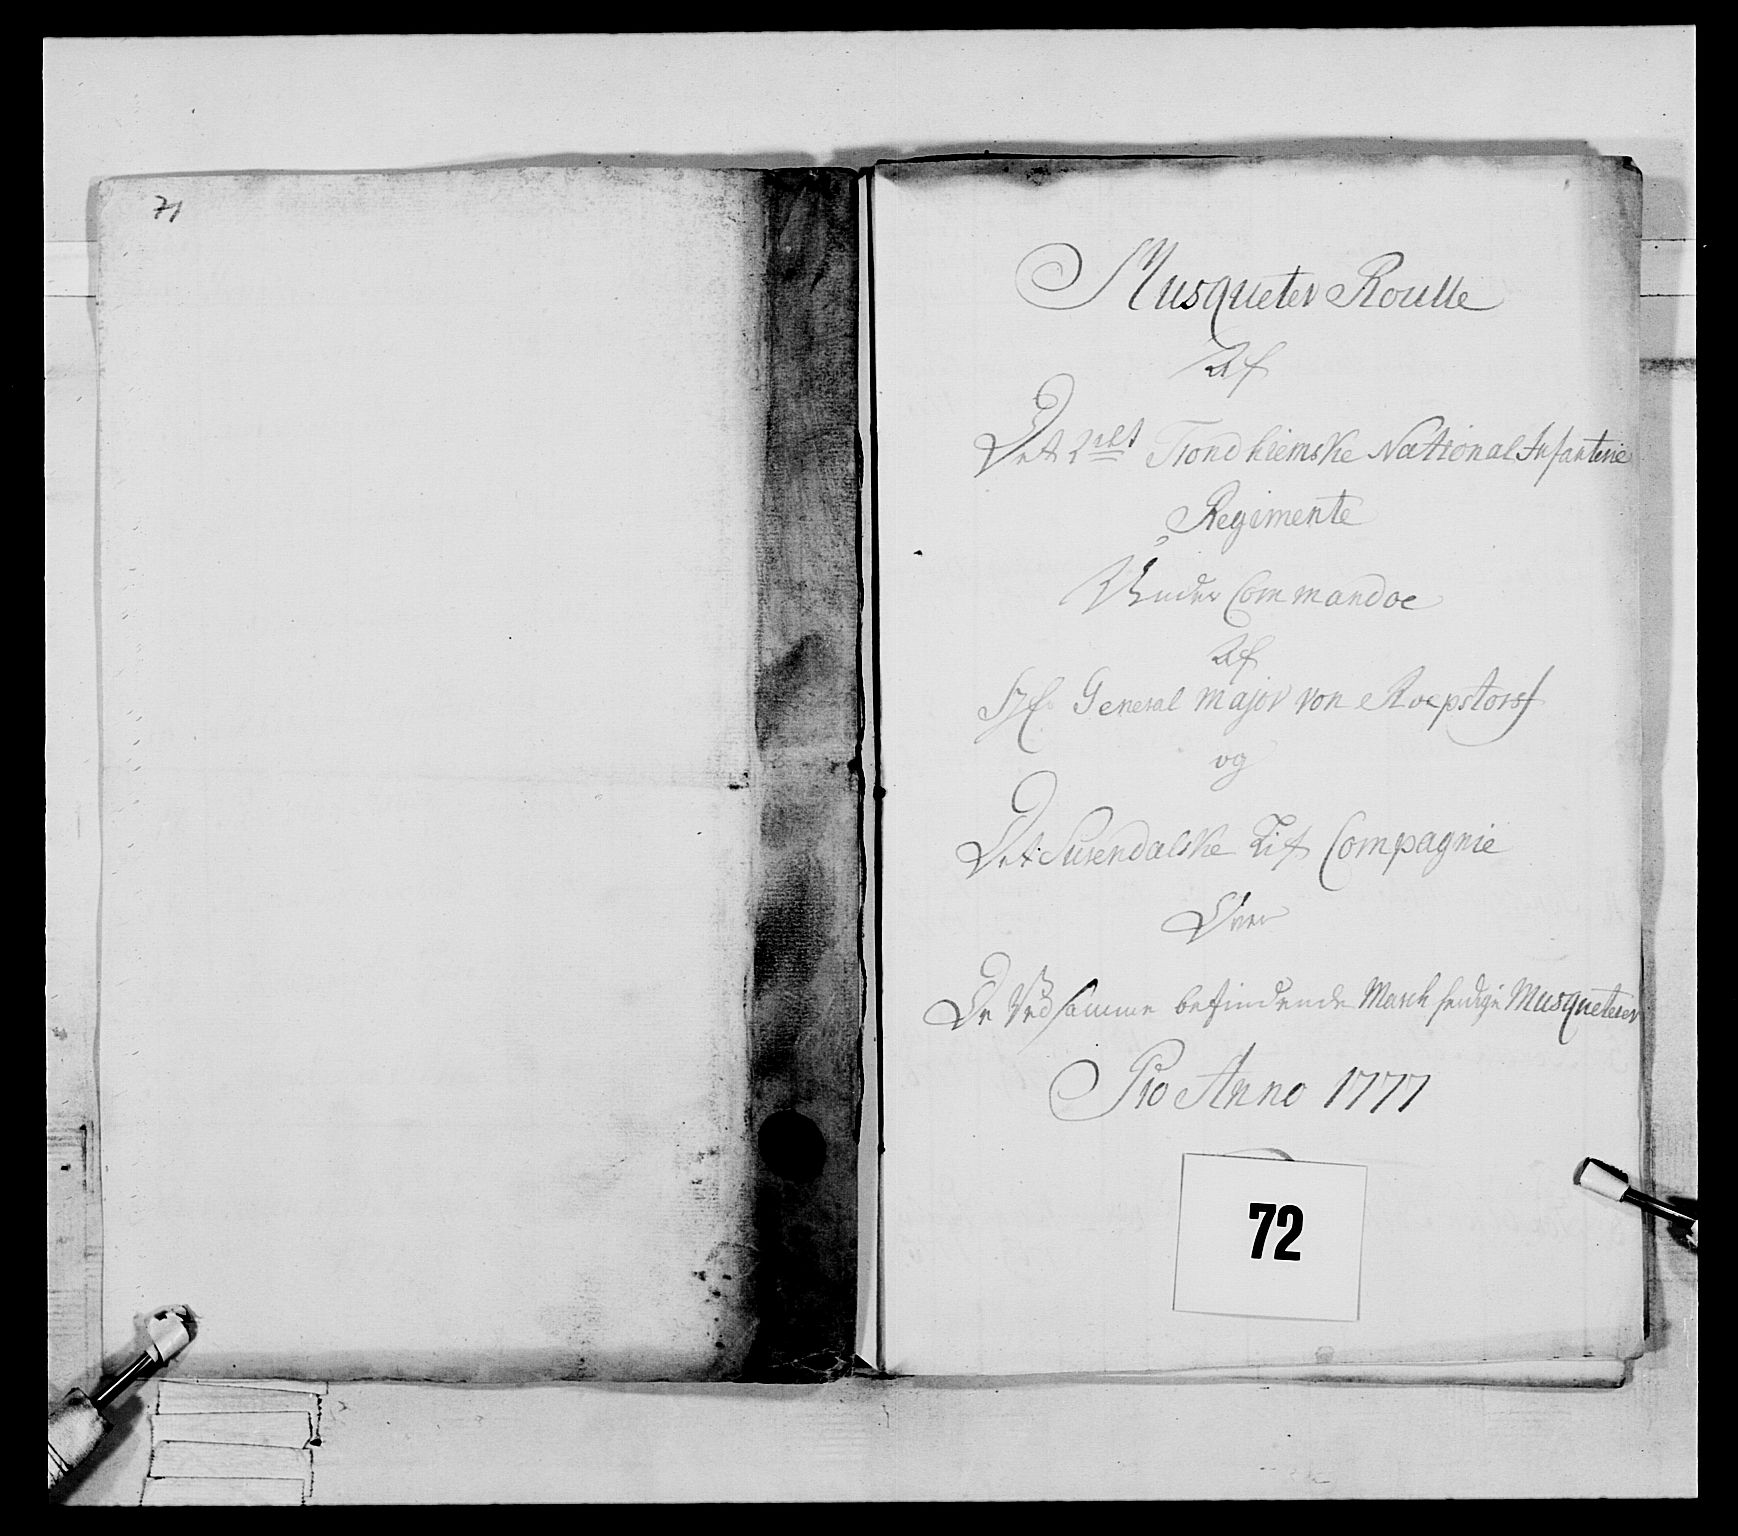 71
Musqueter Roulle
Af
Det 2det Trondhiemske National Infanterie
Regimente
Under Commandoe
Af
Hr. General major von Roepstorff
og
Det Surendalske Lif Compagnie
Over
De Ved samme befindende March ferdige Musqueterer
Pro Anno 1777
72